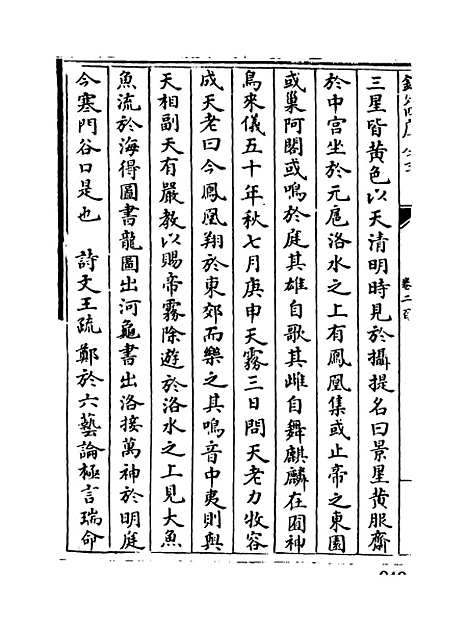 欽定四庫全書
卷二百
三星皆黄色以天清明時見於攝提名曰景星黄服齋
於中宫坐於元扈洛水之上有鳳凰集或止帝之東園
或巢阿閣或鳴於庭其雄自歌其雌自舞麒麟在囿神
鳥來儀五十年秋七月庚申天霧三日問天老力牧容
成天老曰今鳳凰翔於東郊而樂之其鳴音中夷則與
天相副天有嚴教以賜帝霧除遊於洛水之上見大魚
魚流於海得圖書龍圖出河龜書出洛接萬神於明庭
今塞門谷口是也　詩文王疏鄭於六藝論極言瑞命